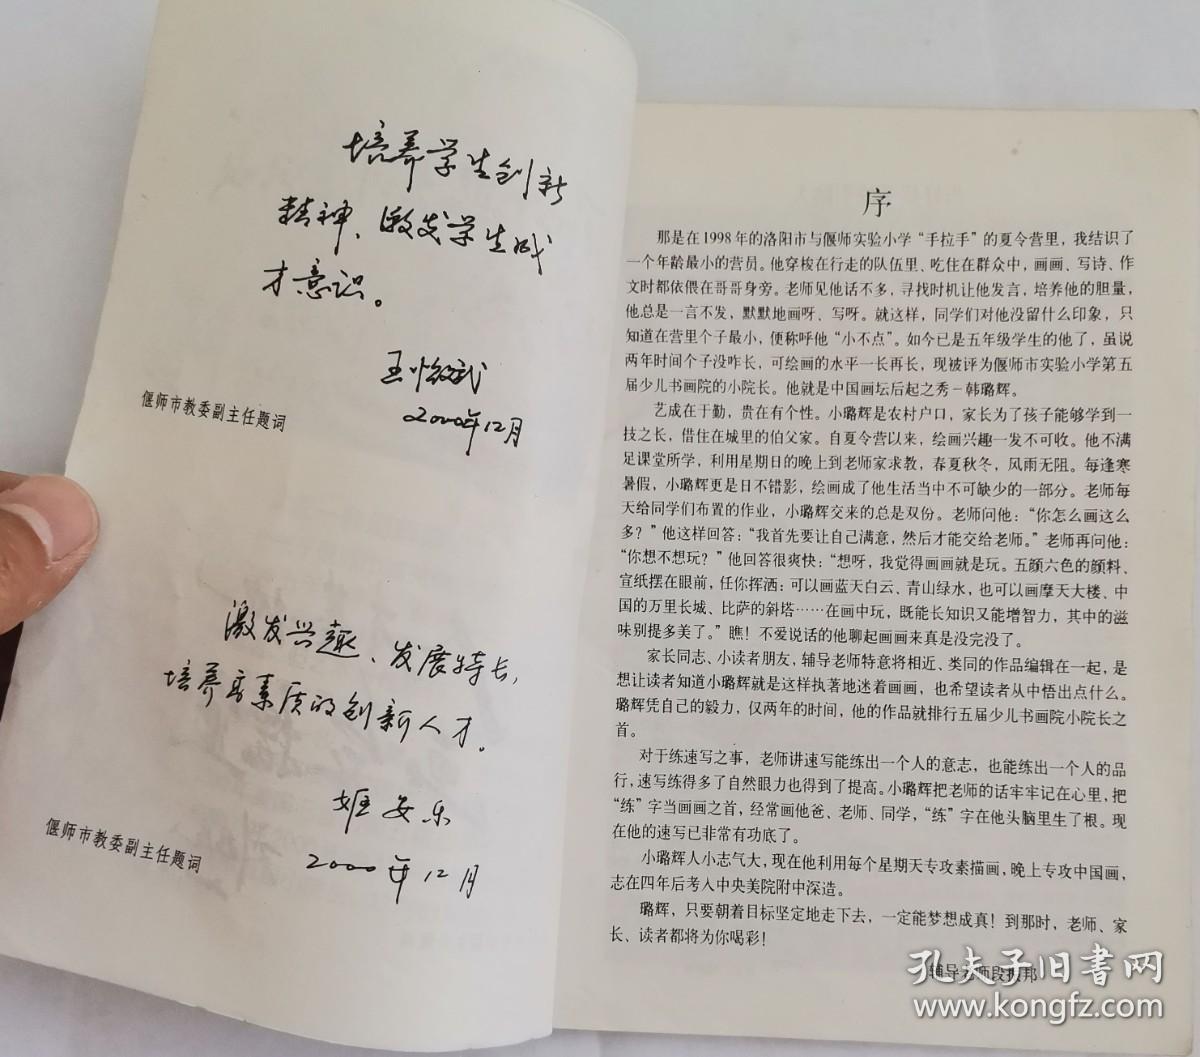 培养学生创新
精神、激发学生成
才意识。
2000年12月
偃师市教委副主任题词
激发兴趣、发展特长,
培养高素质的创新人才。
姬安乐
2000年12月
偃师市教委副主任题词
序
那是在1998年的洛阳市与偃师实验小学“手拉手”的夏令营里，我结识了
一个年龄最小的营员。他穿梭在行走的队伍里、吃住在群众中，画画、写诗、作
文时都依偎在哥哥身旁。老师见他话不多，寻找时机让他发言，培养他的胆量，
他总是一言不发，默默地画呀、写呀。就这样，同学们对他没留什么印象，只
知道在营里个子最小，便称呼他“小不点”。如今已是五年级学生的他了，虽说
两年时间个子没咋长，可绘画的水平一长再长，现被评为偃师市实验小学第五
届少儿书画院的小院长。他就是中国画坛后起之秀－韩璐辉。
艺成在于勤，贵在有个性。小璐辉是农村户口，家长为了孩子能够学到一
技之长，借住在城里的伯父家。自夏令营以来，绘画兴趣一发不可收。他不满
足课堂所学，利用星期日的晚上到老师家求教，春夏秋冬，风雨无阻。每逢寒
暑假，小璐辉更是日不错影，绘画成了他生活当中不可缺少的一部分。老师每
天给同学们布置的作业，小璐辉交来的总是双份。老师问他：“你怎么画这么
多？”他这样回答：“我首先要让自己满意，然后才能交给老师。”老师再问他：
“你想不想玩？”他回答很爽快：“想呀，我觉得画画就是玩。五颜六色的颜料、
宣纸摆在眼前，任你挥洒：可以画蓝天白云、青山绿水，也可以画摩天大楼、中
国的万里长城、比萨的斜塔……在画中玩，既能长知识又能增智力，其中的滋
味别提多美了。”瞧！不爱说话的他聊起画画来真是没完没了。
家长同志、小读者朋友，辅导老师特意将相近、类同的作品编辑在一起，是
想让读者知道小璐辉就是这样执著地迷着画画，也希望读者从中悟出点什么。
璐辉凭自己的毅力，仅两年的时间，他的作品就排行五届少儿书画院小院长之
首。
对于练速写之事，老师讲速写能练出一个人的意志，也能练出一个人的品
行，速写练得多了自然眼力也得到了提高。小璐辉把老师的话牢牢记在心里，把
“练”字当画画之首，经常画他爸、老师、同学，“练”字在他头脑里生了根。现
在他的速写已非常有功底了。
小璐辉人小志气大，现在他利用每个星期天专攻素描画，晚上专攻中国画，
志在四年后考入中央美院附中深造。
璐辉，只要朝着目标坚定地走下去，一定能梦想成真！到那时，老师、家
长、读者都将为你喝彩！
辅导老师段振邦
孔夫子旧书网
www.kongfz.com